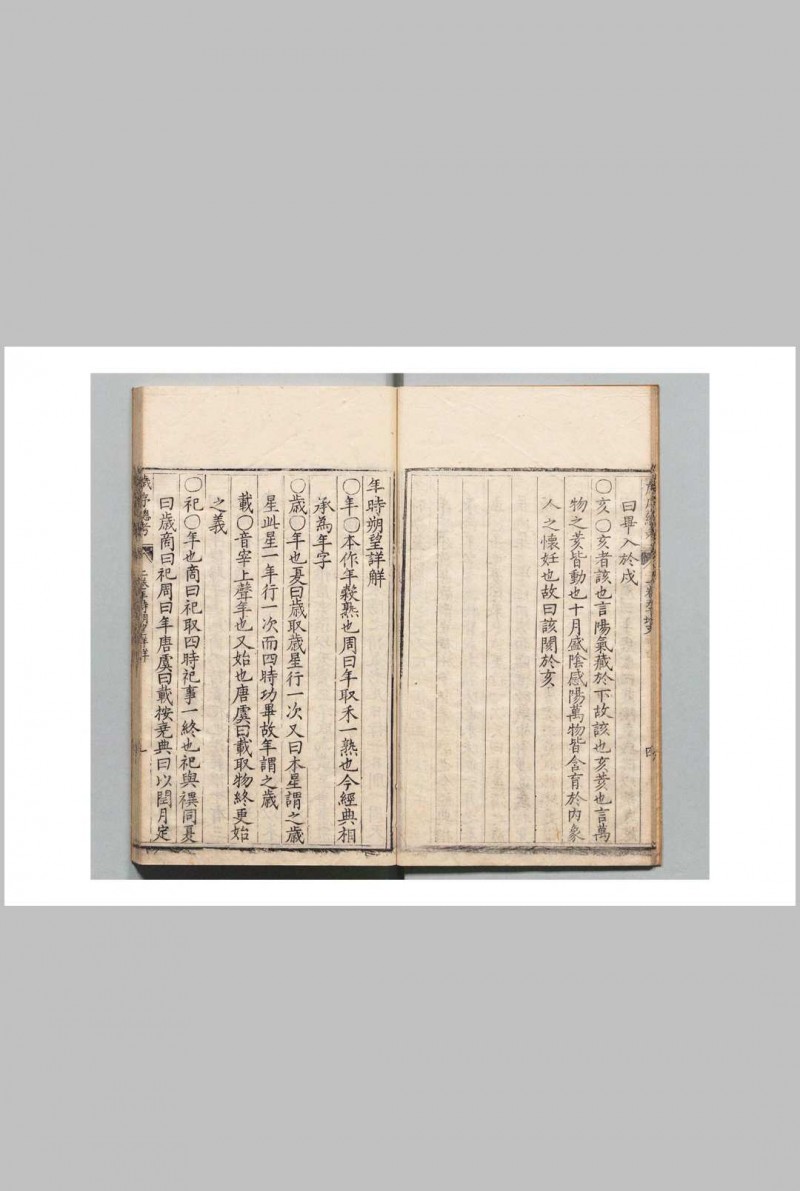 曰畢入於戌
〇亥〇亥者該也言陽氣藏於下故該也亥荄也言萬
物之荄皆動也十月盛陰感陽萬物皆含育於內象
人之懷妊也故曰該閡於亥
四
年時朔望詳觧
〇年〇本作年穀熟也周曰年取禾一熟也今經典相
承為年字
〇歳〇年也夏曰歳取歳星行一次又曰本星謂之歳
星此星一年行一次而四時功畢故年謂之歳
載〇音宰上聲年也又始也唐虞曰載取物終更始
之義
〇祀〇年也商曰祀取四時祀事一終也祀與禩同夏
曰歳商曰祀周曰年唐虞曰載按堯典曰以閏月定
歳序總考